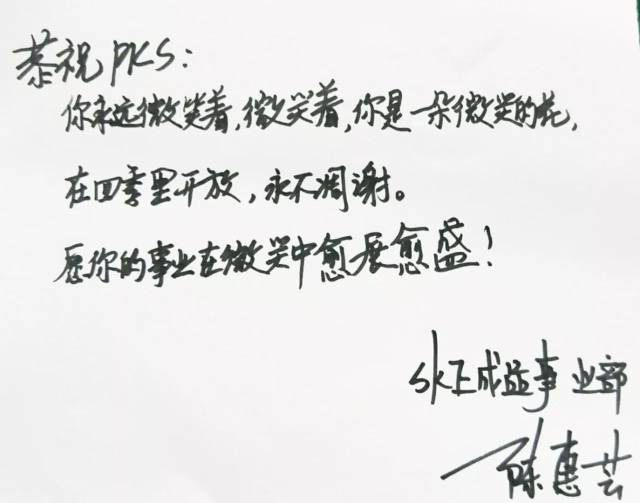 恭祝PKS:
你永远微笑着,微笑着,你是一朵微笑的花,
在四季里开放,永不凋谢。
愿你的事业在微笑中愈展愈盛!
SK正成益事业部
陈惠芸